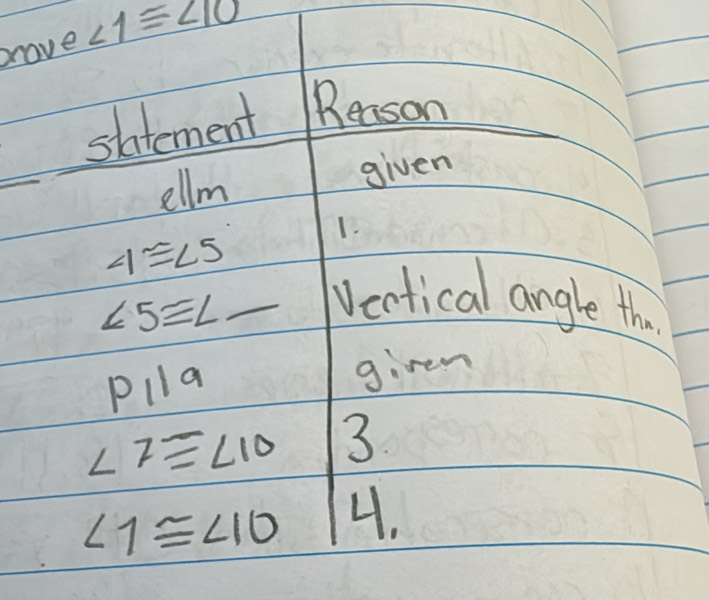 prove ∠1 ≅ ∠10
statement Reason
ell m given
∠1 ≅ ∠5 1.
∠5 ≅ ∠ — Vertical angle thm.
p || q given
∠7 ≅ ∠10 3.
∠1 ≅ ∠10 4.